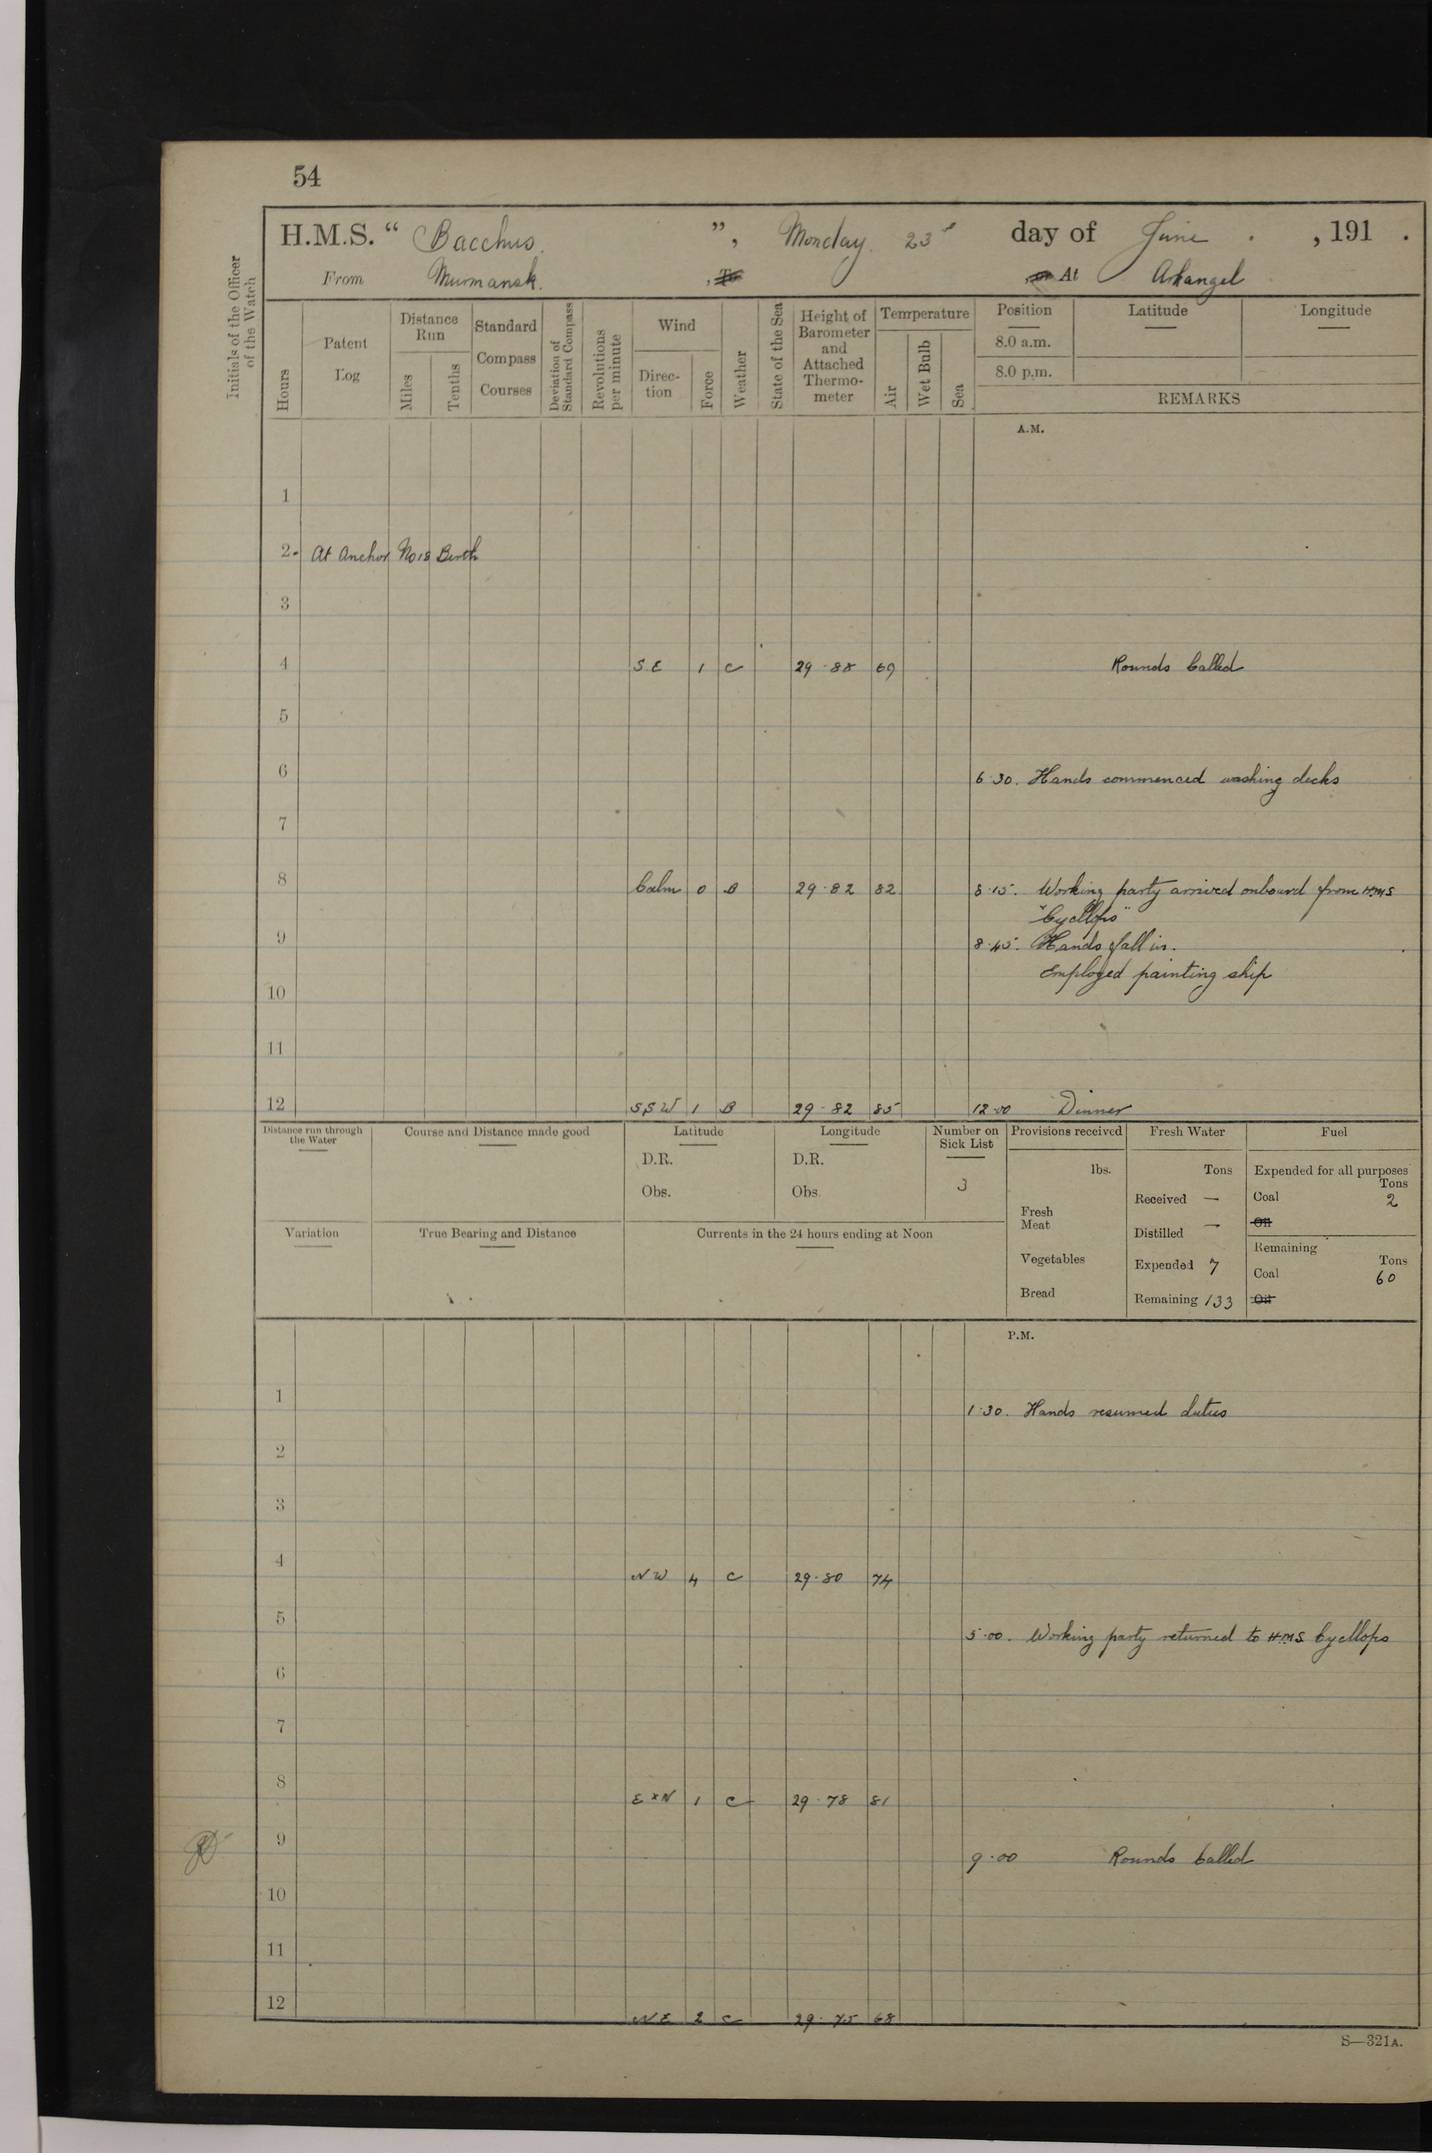 54
H.M.S. “ Bacchus. ”, Monday 23rd day of June , 191 .
From Murmansk. , To , or At Arkangel
Initials of the Officer of the Watch
Hours
Patent Log
Distance Run
Miles
Tenths
Standard Compass Courses
Deviation of Standard Compass
Revolutions per minute
Wind
Direction
Force
Weather
State of the Sea
Height of Barometer and Attached Thermometer
Temperature
Air
Wet Bulb
Sea
Position
Latitude
Longitude
8.0 a.m.
8.0 p.m.
REMARKS
A.M.
1
2 At Anchor No 18 Berth
3
4 SE 1 C 29.88 69 Rounds Called
5
6 6.30. Hands commenced washing decks
7
8 Calm 0 B 29.82 82 8.15. Working party arrived onboard from HMS
"Cycllops"
9 8.45. Hands fall in.
Employed painting ship
10
11
12 SSW 1 B 29.82 85 12.00 Dinner
Distance run through the Water
Course and Distance made good
Latitude
D.R.
Obs.
Longitude
D.R.
Obs.
Number on Sick List
3
Provisions received
lbs.
Fresh Meat
Vegetables
Bread
Fresh Water
Tons
Received —
Distilled —
Expended 7
Remaining 133
Fuel
Expended for all purposes
Tons
Coal 2
Oil
Remaining
Tons
Coal 60
Oil
Variation
True Bearing and Distance
Currents in the 24 hours ending at Noon
P.M.
1 1.30. Hands resumed duties
2
3
4 NW 4 C 29.80 74
5 5.00. Working party returned to HMS Cycllops
6
7
8 ExN 1 C 29.78 81
9 9.00 Rounds Called
10
11
12 NE 2 C 29.75 68
S—321A.